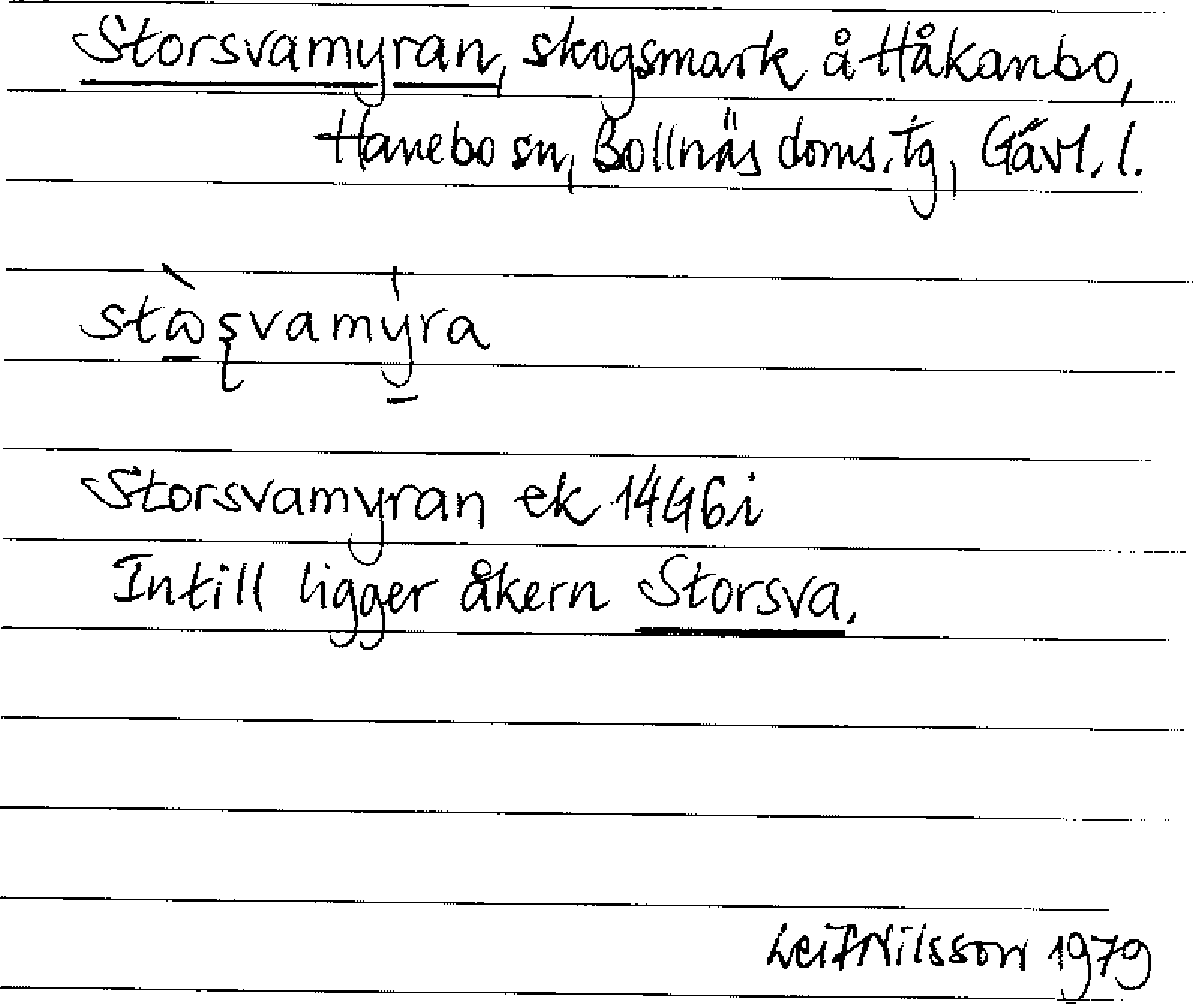 Storsvamyran, skogsmark å Håkanbo,
Hanebo sn, Bollnäs doms. tg, Gävl. l.
stɷ̀ʂvamýra
Storsvamyran ek 14G6i
Intill ligger åkern Storsva.
Leif Nilsson 1979